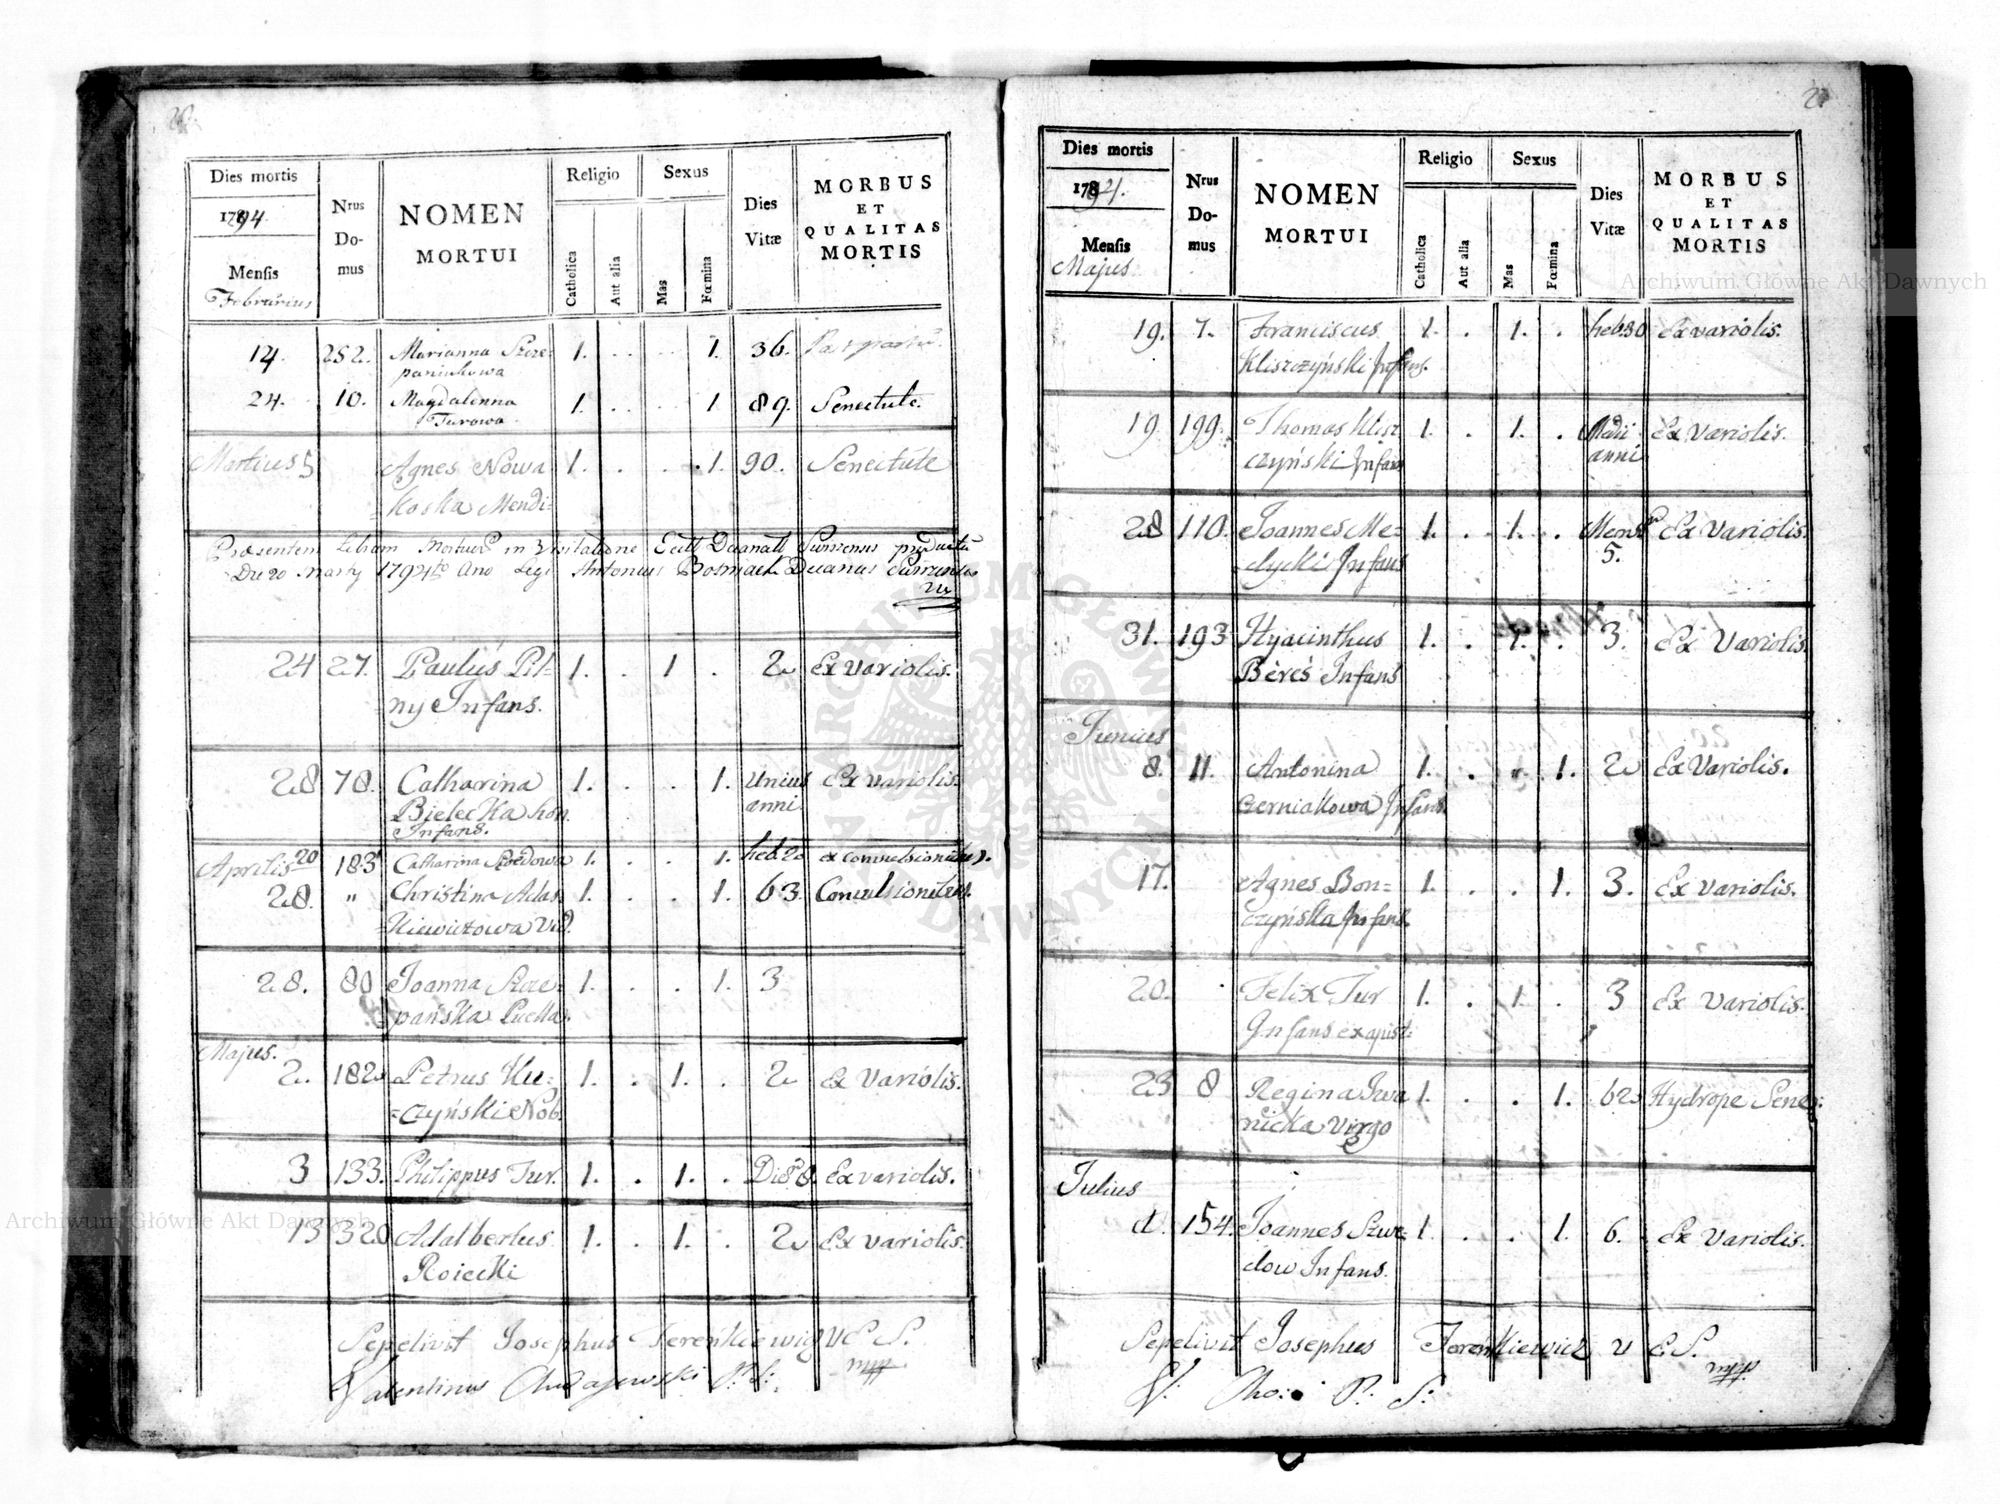 Dies mortis
1794.
Mensis
Februarius
Nrus
Do-
mus
NOMEN
MORTUI
Religio
Catholica
Aut alia
Sexus
Mas
Fœmina
Dies
Vitæ
MORBUS
ET
QUALITAS
MORTIS
14. 252. Marianna Szcze= 1. . . . 1. 36.
paniukowa
24. 10. Magdalenna 1. . . . 1 89. Senectute.
Turowa.
Martius 5 Agnes Nowa 1. . . . 1. 90. Senectute
=koska Mendi=
Præsentem Librum Mortuor in Visitatione
Die 20 Marty 1794to Ano Antonius Decanus
24 27. Paulus Pil= 1. . 1 . 2 Ex Variolis.
=ny Infans.
28 78. Catharina 1. . . 1. Unius Ex Variolis.
Bielecka anni
Infans.
Aprilis 20 183 Catharina 1. . . 1. heb. 20 ex convulsionibus.
28. " Christina Adas= 1. . . 1. 63. Convulsionibus.
=kiewiczowa Vid.
28. 80 Joanna Szcze= 1. . . 1. 3
=pańska Puella.
Majus.
2. 182 Petrus Ku= 1. . 1. . 2 Ex Variolis.
=czyński Nob.
3 133. Philippus Tur. 1. . 1. . Die. 8. Ex variolis.
13 320 Adalbertus 1. . 1. . 2 Ex variolis.
Roiecki
Sepelivit Josephus Tereńkiewicz V C S.
mpp
Valentinus P. S.
Dies mortis
1794.
Mensis
Majus
Nrus
Do-
mus
NOMEN
MORTUI
Religio
Catholica
Aut alia
Sexus
Mas
Fœmina
Dies
Vitæ
MORBUS
ET
QUALITAS
MORTIS
19. 7. Franciscus 1. . 1. . heb. 30 Ex variolis.
Kliszczyński Infans.
19 199. Thomas Klisz 1. . 1. . Medii Ex Variolis.
czyński Infans anni
28 110. Joannes Me= 1. . 1. . Mens Ex Variolis.
=lycki Infans 5.
31. 193 Hyacinthus 1. . 1. . 3. Ex Variolis.
Béres Infans
Junius
8. 11. Antonina 1. . . 1. 2 Ex Variolis.
Czerniakowa Infans.
17. Agnes Bon= 1. . . 1. 3. Ex variolis.
czyńska Infans.
20. Felix Tur 1. . 1. . 3 Ex Variolis.
Infans
23 8 Regina Iwa 1. . . 1. 62 Hydrope Senec:
nicka Virgo
Julius
d. 154. Joannes Szwe= 1. . . 1. 6. Ex Variolis.
dow Infans.
Sepelivit Josephus Tereńkiewicz V C S.
mpp.
V: Cho: P. S:
Archiwum Główne Akt Dawnych
Archiwum Główne Akt Dawnych
ARCHIWUM GŁÓWNE AKT DAWNYCH